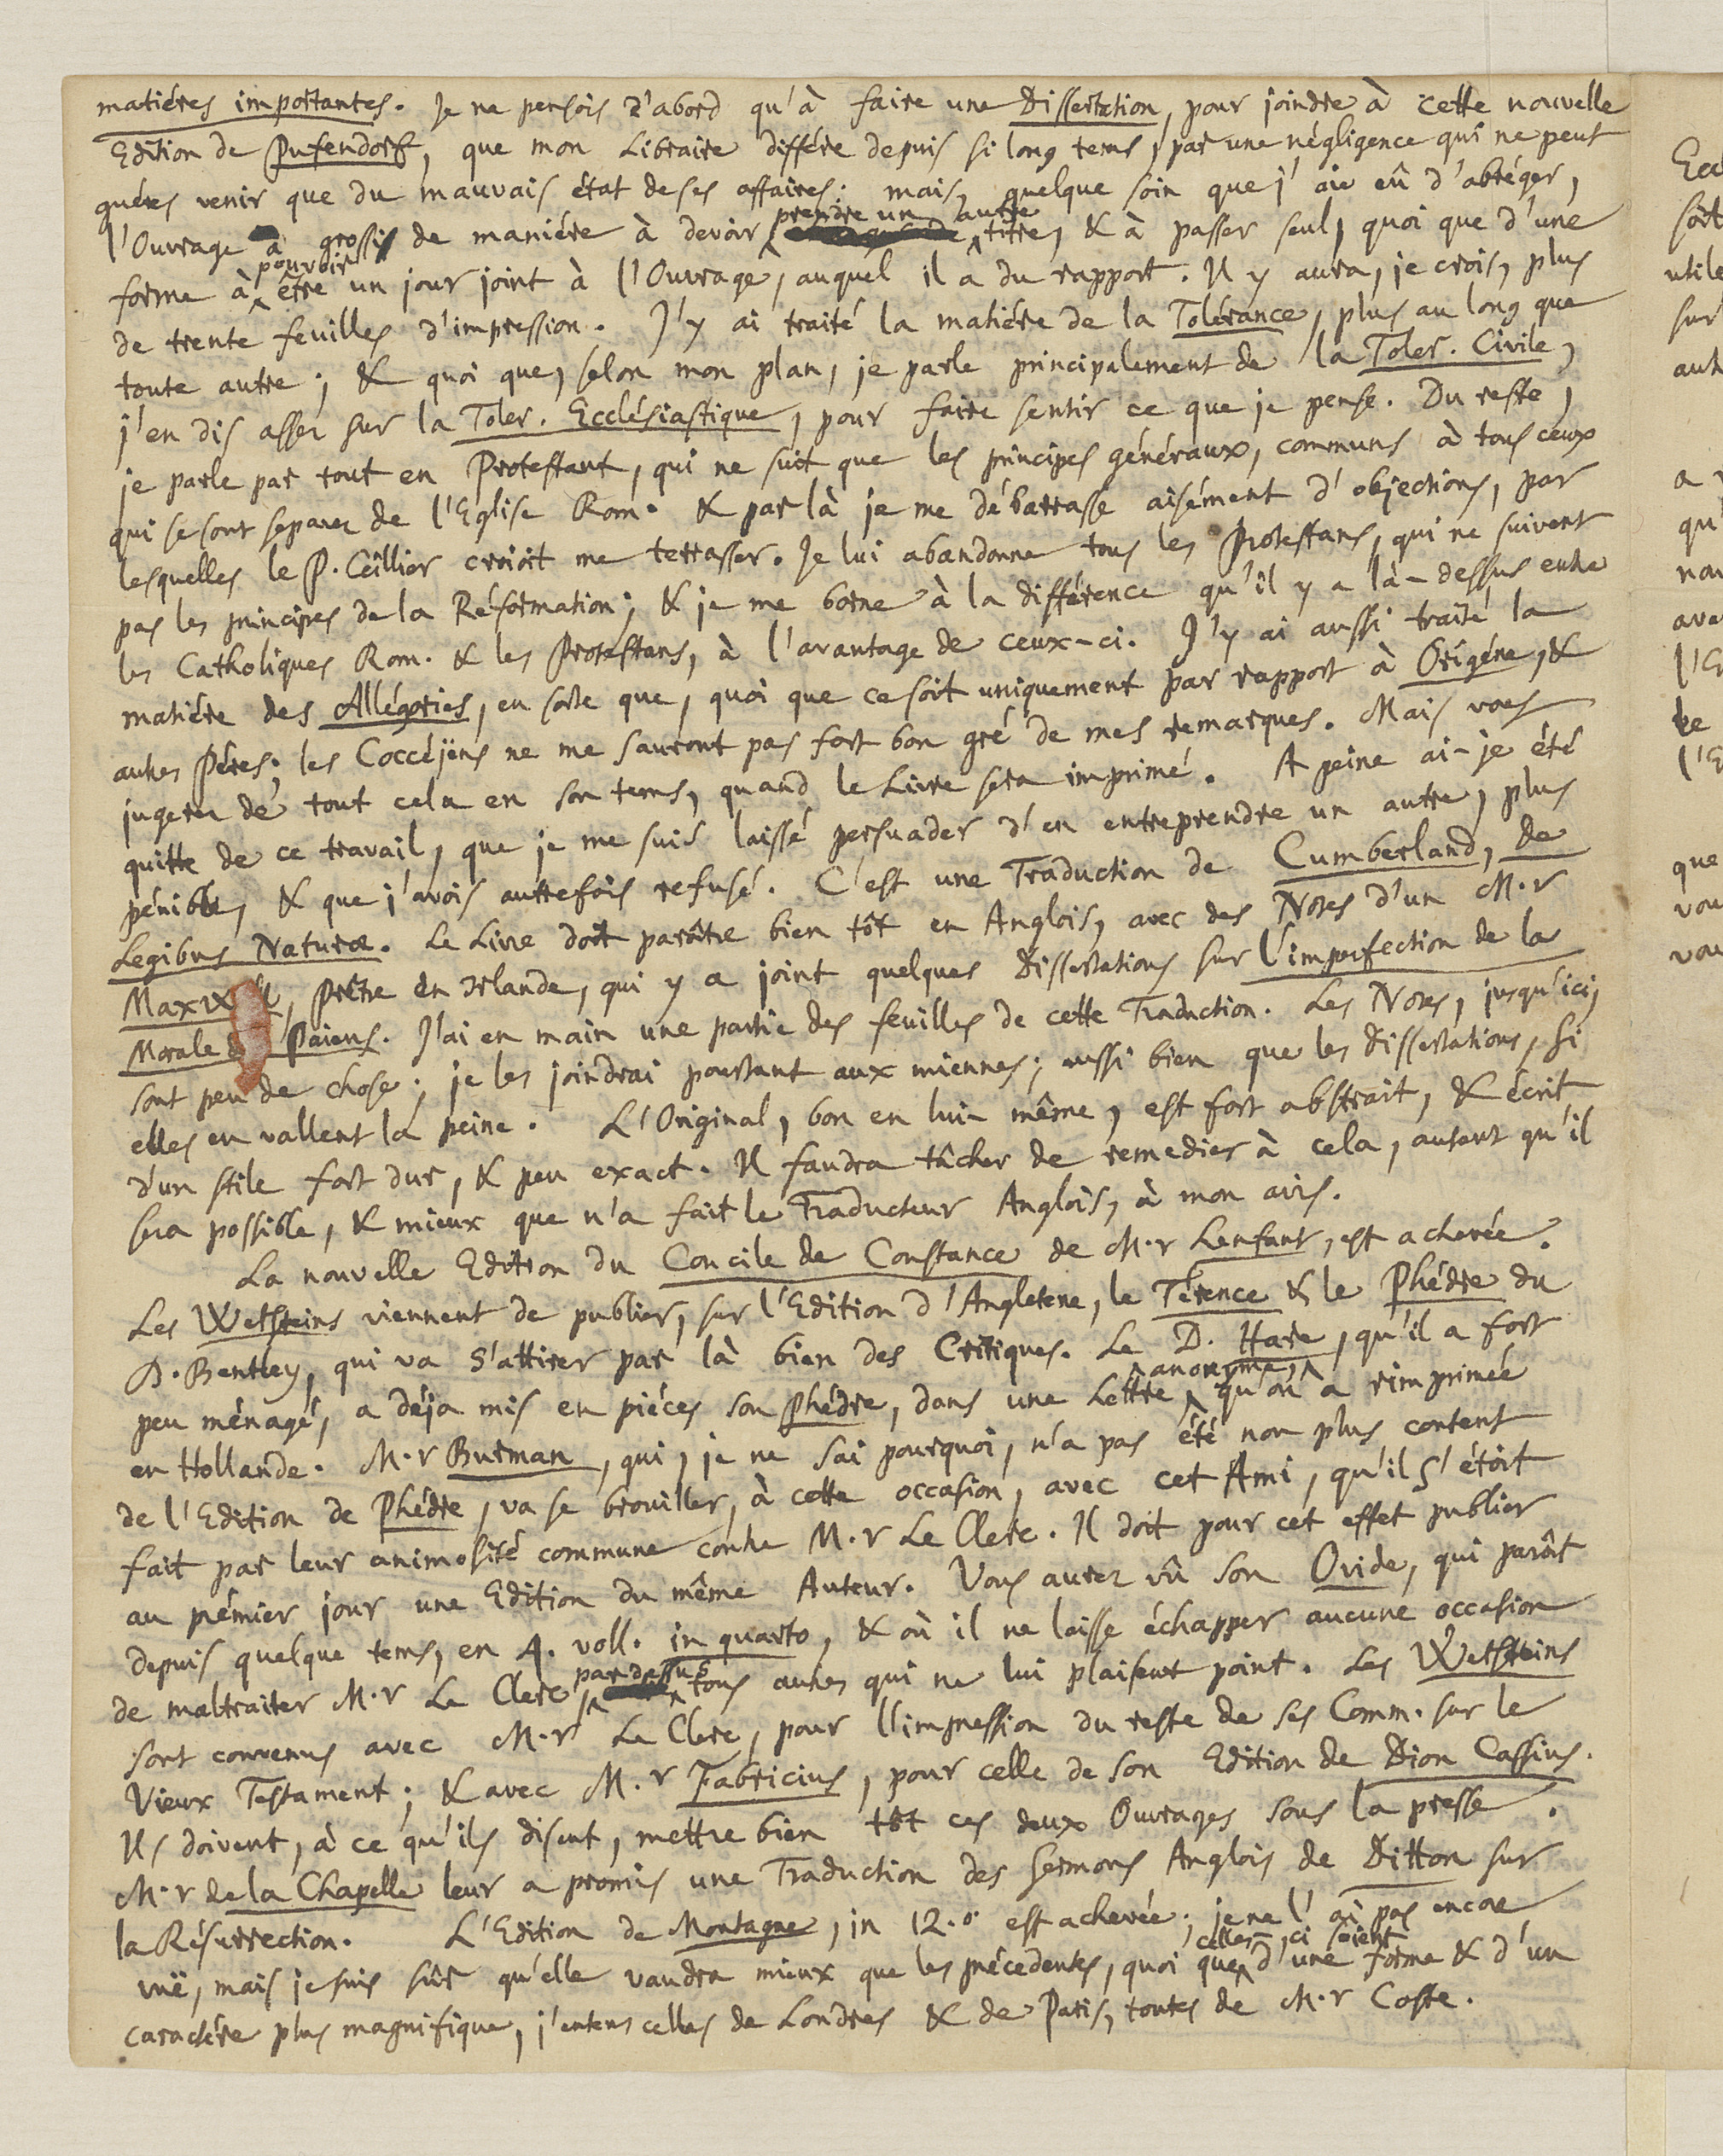 matiéres importantes. Je ne pensois d'abord qu'à faire une Dissertation, pour joindre à cette nouvelle
Edition de Pufendorf, que mon Libraire différe depuis si long tems, par une négligence qui ne peut
guéres venir que du mauvais état de ses affaires: mais, quelque soin que j'aie eû d'abréger,
l'Ouvrage a grossi de maniére à devoir prendre un autre titre, & à passer seul, quoi que d'une
forme à pouvoir être un jour joint à l'Ouvrage, auquel il a du rapport. Il y aura, je crois, plus
de trente feuilles d'impression. J'y ai traité la matiére de la Tolérance, plus au long que
toute autre; & quoi que, selon mon plan, je parle principalement de la Toler. Civile,
j'en dis assez sur la Toler. Ecclésiastique, pour faire sentir ce que je pense. Du reste,
je parle par tout en Protestant, qui ne suit que les principes généraux, communs à tous ceux
qui se sont separez de l'Eglise Rom. & par là je me débarrasse aisément d'objections, par
lesquelles le P. Ceillier croioit me terrasser. Je lui abandonne tous les Protestans, qui ne suivent
pas les principes de la Réformation; & je me borne à la différence qu'il y a là-dessus entre
les Catholiques Rom. & les Protestans, à l'avantage de ceux-ci. J'y ai aussi traité la
matiére des Allégories, en sorte que, quoi que ce soit uniquement par rapport à Origéne, &
autres Péres; les Coccéjens ne me sauront pas fort bon gré de mes remarques. Mais vous
jugerez de tout cela en son tems, quand le Livre sera imprimé. A peine ai-je été
quitte de ce travail, que je me suis laissé persuader d'en entreprendre un autre, plus
pénible, & que j'avois autrefois refusé. C'est une Traduction de Cumberland, de
Legibus Naturæ. Le Livre doit parâitre bien tôt en Anglois, avec des Notes d'un M.r
Maxwell, Prêtre en Irlande, qui y a joint quelques Dissertations sur l'imperfection de la
Morale Paiens. J'ai en main une partie des feuilles de cette Traduction. Les Notes, jusqu'ici,
sont peu de chose; je les joindrai pourtant aux miennes; aussi bien que les Dissertations, si
elles en vallent la peine. L'Original, bon en lui-même, est fort abstrait, & écrit
d'un stile fort dur, & peu exact. Il faudra tâcher de remedier à cela, autant qu'il
sera possible, & mieux que n'a fait le Traducteur Anglois, à mon avis.
La nouvelle Edition du Concile de Constance de M.r Lenfant, est achevée.
Les Wetsteins viennent de publier, sur l'Edition d'Angleterre, le Térence & le Phédre du
D. Bentley, qui va s'attirer par là bien des Critiques. Le D. Hare, qu'il a fort
peu ménagé, a déja mis en piéces son Phédre, dans une Lettre anonyme, qu'on a rimprimée
en Hollande. M.r Burman, qui, je ne sai pourquoi, n'a pas été non plus content
de l'Edition de Phédre, va se brouiller, à cette occasion, avec cet Ami, qu'il s'étoit
fait par leur animosité commune contre M.r Le Clerc. Il doit pour cet effet publier
au prémier jour une Edition du même Auteur. Vous aurez vû son Ovide, qui parôit
depuis quelque tems, en 4. voll. in quarto, & où il ne laisse échapper aucune occasion
de maltraiter M.r Le Clerc par dessus tous autres qui ne lui plaisent point. Les Wetsteins
sont convenus avec M.r Le Clerc, pour l'impression du reste de ses Comm. sur le
Vieux Testament; & avec M.r Fabricius, pour celle de son Edition de Dion Cassius.
Ils doivent, à ce qu'ils disent, mettre bien tôt ces deux Ouvrages sous la presse.
M.r de la Chapelle leur a promis une Traduction des Sermons Anglois de Ditton sur
la Résurrection. L'Edition de Montagne, in 12.o est achevée; je ne l'ai pas encore
vuë, mais je suis sûr qu'elle vaudra mieux que les précedentes, quoi que celles-ci soient d'une forme & d'un
caractére plus magnifique, j'entens celles de Londres & de Paris, toutes de M.r Coste.